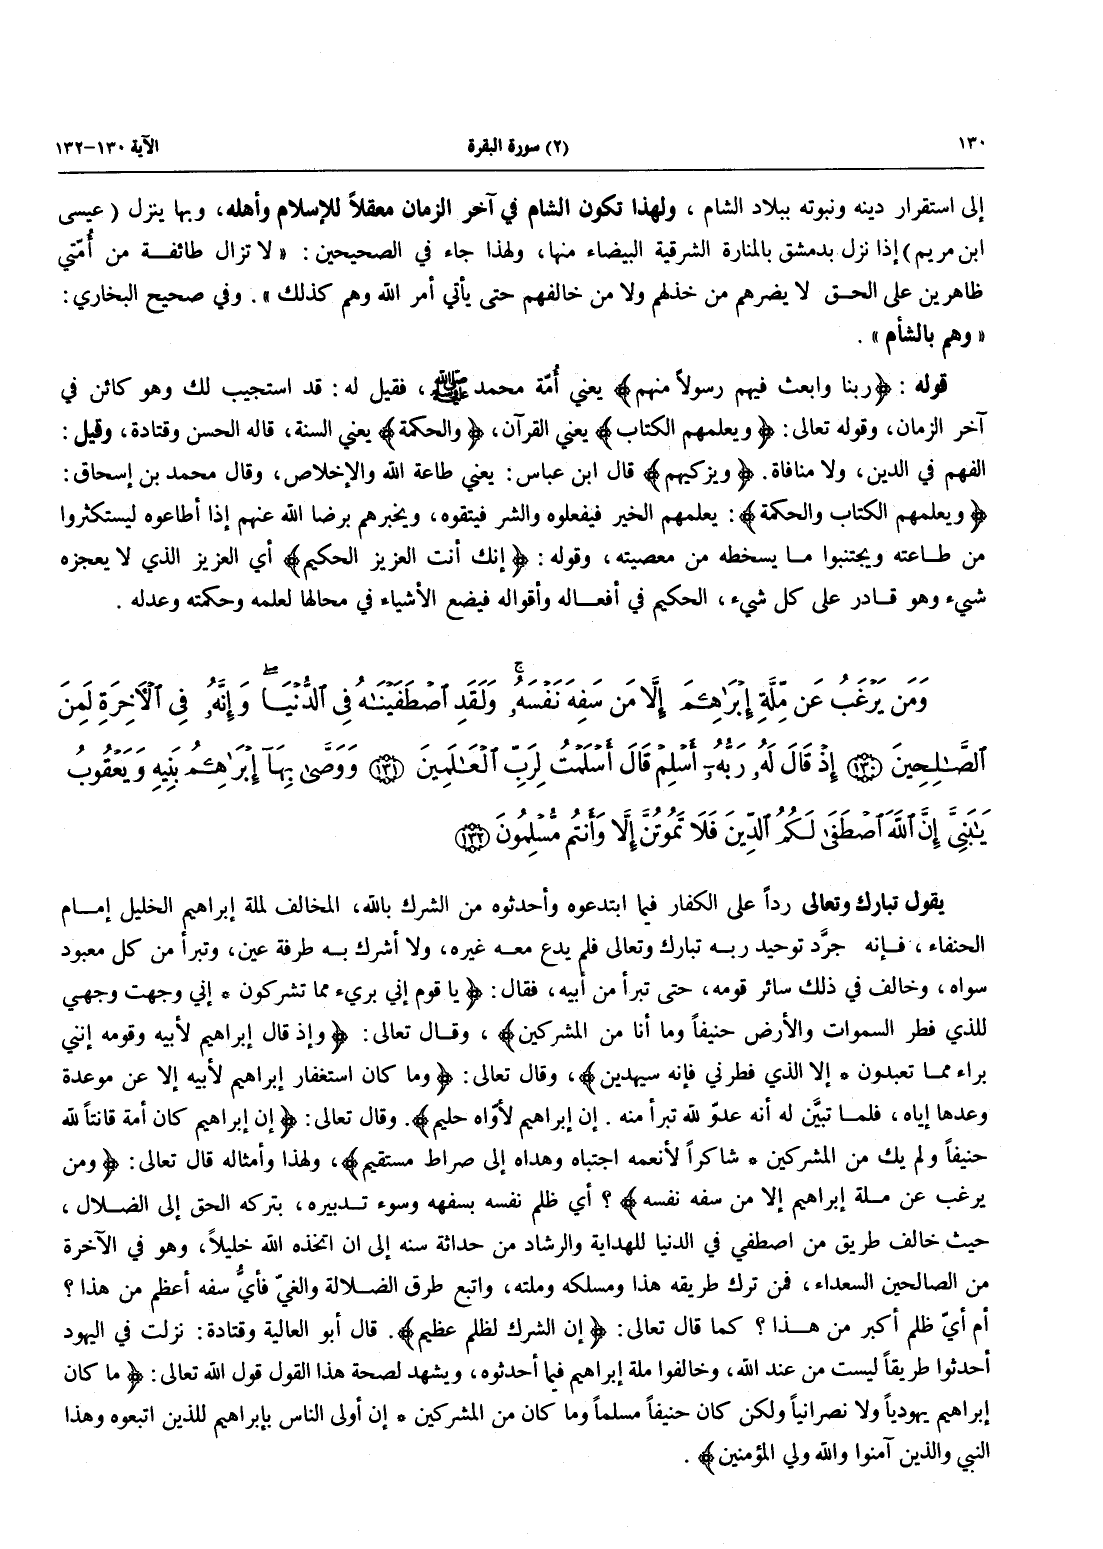 ١٣٠ (٢) سورة البقرة الآية ١٣٠-١٣٢
إلى استقرار دينه ونبوته ببلاد الشام ، ولهذا تكون الشام في آخر الزمان معقلاً للإسلام وأهله، وبها ينزل ( عيسى
ابن مريم ) إذا نزل بدمشق بالمنارة الشرقية البيضاء منها، ولهذا جاء في الصحيحين : « لا تزال طائفة من أُمّتي
ظاهرين على الحق لا يضرهم من خذلهم ولا من خالفهم حتى يأتي أمر الله وهم كذلك » . وفي صحيح البخاري :
« وهم بالشأم » .
قوله : ﴿ربنا وابعث فيهم رسولاً منهم﴾ يعني أُمّة محمد ﷺ ، فقيل له : قد استجيب لك وهو كائن في
آخر الزمان، وقوله تعالى: ﴿ ويعلمهم الكتاب﴾ يعني القرآن، ﴿ والحكمة﴾ يعني السنة، قاله الحسن وقتادة، وقيل :
الفهم في الدين، ولا منافاة. ﴿ ويزكيهم﴾ قال ابن عباس: يعني طاعة الله والإخلاص، وقال محمد بن إسحاق:
﴿ ويعلمهم الكتاب والحكمة﴾: يعلمهم الخير فيفعلوه والشر فيتقوه، ويخبرهم برضا الله عنهم إذا أطاعوه ليستكثروا
من طاعته ويجتنبوا ما يسخطه من معصيته، وقوله: ﴿ إنك أنت العزيز الحكيم﴾ أي العزيز الذي لا يعجزه
شيء وهو قادر على كل شيء، الحكيم في أفعاله وأقواله فيضع الأشياء في محالها لعلمه وحكمته وعدله .
وَمَن يَرْغَبُ عَن مِّلَّةِ إِبْرَٰهِـۧمَ إِلَّا مَن سَفِهَ نَفْسَهُۥ ۚ وَلَقَدِ ٱصْطَفَيْنَـٰهُ فِى ٱلدُّنْيَا ۖ وَإِنَّهُۥ فِى ٱلْـَٔاخِرَةِ لَمِنَ
ٱلصَّـٰلِحِينَ ﴿١٣٠﴾ إِذْ قَالَ لَهُۥ رَبُّهُۥٓ أَسْلِمْ قَالَ أَسْلَمْتُ لِرَبِّ ٱلْعَـٰلَمِينَ ﴿١٣١﴾ وَوَصَّىٰ بِهَآ إِبْرَٰهِـۧمُ بَنِيهِ وَيَعْقُوبُ
يَـٰبَنِىَّ إِنَّ ٱللَّهَ ٱصْطَفَىٰ لَكُمُ ٱلدِّينَ فَلَا تَمُوتُنَّ إِلَّا وَأَنتُم مُّسْلِمُونَ ﴿١٣٢﴾
يقول تبارك وتعالى رداً على الكفار فيما ابتدعوه وأحدثوه من الشرك بالله، المخالف لملة إبراهيم الخليل إمام
الحنفاء ، فإنه جرَّد توحيد ربه تبارك وتعالى فلم يدع معه غيره، ولا أشرك به طرفة عين، وتبرأ من كل معبود
سواه، وخالف في ذلك سائر قومه، حتى تبرأ من أبيه، فقال: ﴿ يا قوم إني بريء مما تشركون * إني وجهت وجهي
للذي فطر السموات والأرض حنيفاً وما أنا من المشركين﴾ ، وقال تعالى: ﴿ وإذ قال إبراهيم لأبيه وقومه إنني
براء مما تعبدون * إلا الذي فطرني فإنه سيهدين﴾، وقال تعالى: ﴿ وما كان استغفار إبراهيم لأبيه إلا عن موعدة
وعدها إياه، فلما تبيَّن له أنه عدوّ لله تبرأ منه . إن إبراهيم لأوّاه حليم﴾. وقال تعالى: ﴿ إن إبراهيم كان أمة قانتاً لله
حنيفاً ولم يك من المشركين * شاكراً لأنعمه اجتباه وهداه إلى صراط مستقيم﴾، ولهذا وأمثاله قال تعالى: ﴿ ومن
يرغب عن ملة إبراهيم إلا من سفه نفسه ﴾ ؟ أي ظلم نفسه بسفهه وسوء تدبيره، بتركه الحق إلى الضلال ،
حيث خالف طريق من اصطفي في الدنيا للهداية والرشاد من حداثة سنه إلى ان اتخذه الله خليلاً، وهو في الآخرة
من الصالحين السعداء، فمن ترك طريقه هذا ومسلكه وملته، واتبع طرق الضلالة والغيّ فأيُّ سفه أعظم من هذا ؟
أم أيّ ظلم أكبر من هذا ؟ كما قال تعالى: ﴿ إن الشرك لظلم عظيم﴾. قال أبو العالية وقتادة: نزلت في اليهود
أحدثوا طريقاً ليست من عند الله، وخالفوا ملة إبراهيم فيما أحدثوه، ويشهد لصحة هذا القول قول الله تعالى: ﴿ ما كان
إبراهيم يهودياً ولا نصرانياً ولكن كان حنيفاً مسلماً وما كان من المشركين * إن أولى الناس بإبراهيم للذين اتبعوه وهذا
النبي والذين آمنوا والله ولي المؤمنين﴾ .